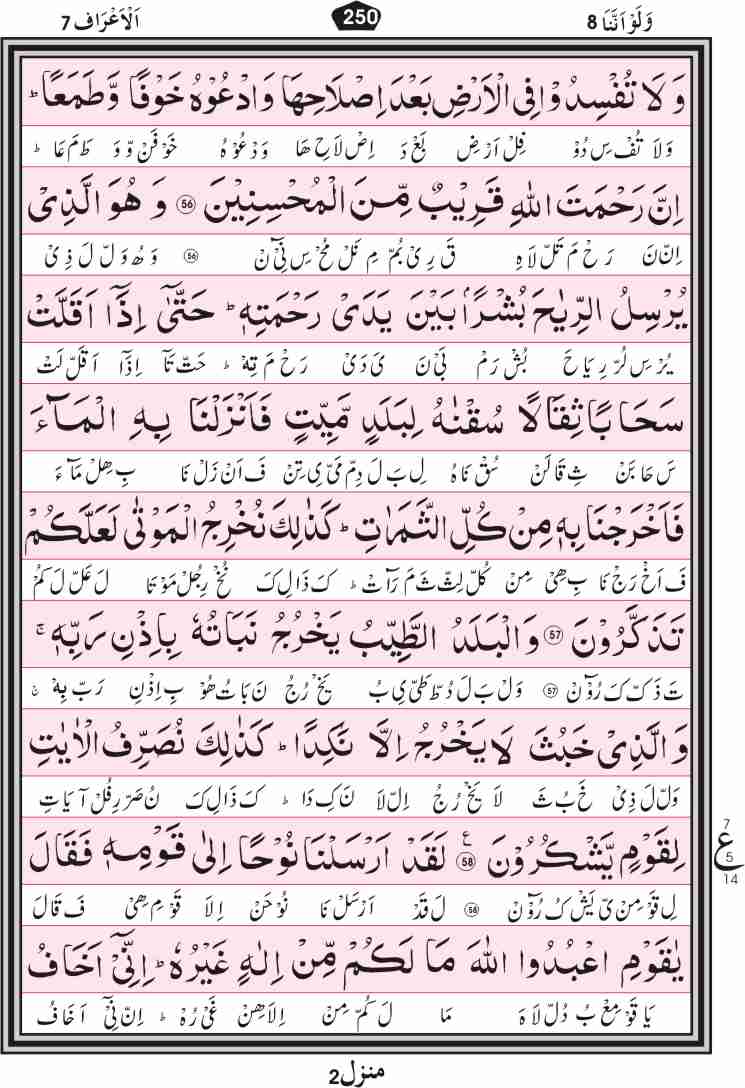 وَلَوْ اَنَّنَا 8
250
اَلْاَعْرَاف 7
وَ لَا تُفْسِدُوْا فِي الْاَرْضِ بَعْدَ اِصْلَاحِهَا وَادْعُوْهُ خَوْفًا وَّطَمَعًا ؕ
وَ لَا تُفْ سِ دُوْ فِلْ اَرْ ضِ بَعْ دَ اِصْ لَا حِ هَا وَدْ عُوْ هُ خَوْ فَنْ وْ وَ طَ مَ عَا ؕ
اِنَّ رَحْمَتَ اللّٰهِ قَرِيْبٌ مِّنَ الْمُحْسِنِيْنَ ﴿56﴾ وَ هُوَ الَّذِيْ
اِنْ نَ رَ حْ مَ تَلْ لَا هِ قَ رِيْ بُمْ مِ نَلْ مُحْ سِ نِيْٓ نْ ﴿56﴾ وَ هُ وَلْ لَ ذِيْ
يُرْسِلُ الرِّيٰحَ بُشْرًاۢ بَيْنَ يَدَيْ رَحْمَتِهٖ ؕ حَتّٰۤى اِذَاۤ اَقَلَّتْ
يُرْ سِ لُرْ رِ يَا حَ بُشْ رَمْ بَيْ نَ يَ دَيْ رَحْ مَ تِهْ ؕ حَتْ تَآ اِذَآ اَ قَلْ لَتْ
سَحَابًا ثِقَالًا سُقْنٰهُ لِبَلَدٍ مَّيِّتٍ فَاَنْزَلْنَا بِهِ الْمَآءَ
سَ حَا بَنْ ثِ قَا لَنْ سُقْ نَا هُ لِ بَ لَ دِمْ مَيْ يِ تِنْ فَ اَنْ زَلْ نَا بِ هِلْ مَآ ءَ
فَاَخْرَجْنَا بِهٖ مِنْ كُلِّ الثَّمَرٰتِ ؕ كَذٰلِكَ نُخْرِجُ الْمَوْتٰى لَعَلَّكُمْ
فَ اَخْ رَجْ نَا بِ هِيْ مِنْ كُلْ لِثْ ثَ مَ رَآ تْ ؕ كَ ذَا لِ كَ نُخْ رِ جُلْ مَوْ تَا لَ عَلْ لَ كُمْ
تَذَكَّرُوْنَ ﴿57﴾ وَالْبَلَدُ الطَّيِّبُ يَخْرُجُ نَبَاتُهٗ بِاِذْنِ رَبِّهٖ ۚ
تَ ذَكْ كَ رُوْٓ نْ ﴿57﴾ وَلْ بَ لَ دُطْ طَيْ يِ بُ يَخْ رُ جُ نَ بَا تُ هُوْ بِ اِذْ نِ رَبْ بِهْ ۚ
وَ الَّذِيْ خَبُثَ لَا يَخْرُجُ اِلَّا نَكِدًا ؕ كَذٰلِكَ نُصَرِّفُ الْاٰيٰتِ
وَلْ لَ ذِيْ خَ بُ ثَ لَا يَخْ رُ جُ اِلْ لَا نَ كِ دَا ؕ كَ ذَا لِ كَ نُ صَرْ رِ فُلْ آ يَا تِ
لِقَوْمٍ يَّشْكُرُوْنَ ﴿58﴾ ع لَقَدْ اَرْسَلْنَا نُوْحًا اِلٰى قَوْمِهٖ فَقَالَ
لِ قَوْ مِنْ يَ يَشْ كُ رُوْٓ نْ ﴿58﴾ لَ قَدْ اَرْ سَلْ نَا نُوْ حَنْ اِ لَا قَوْ مِ هِيْ فَ قَا لَ
7
ع
5
14
يٰقَوْمِ اعْبُدُوا اللّٰهَ مَا لَكُمْ مِّنْ اِلٰهٍ غَيْرُهٗ ؕ اِنِّيْۤ اَخَافُ
يَا قَوْ مِعْ بُ دُلْ لَا هَ مَا لَ كُمْ مِنْ اِ لَا هِنْ غَيْ رُهْ ؕ اِنْ نِيْٓ اَ خَا فُ
منزل 2